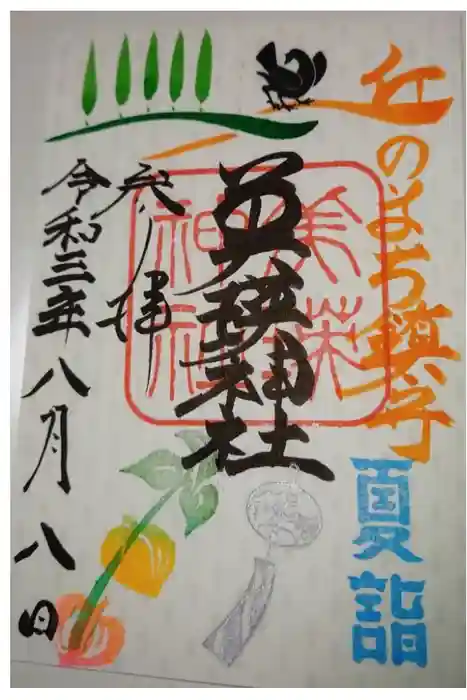 丘のまち鎮守
夏詣
美瑛神社
美瑛
神社
参拝
令和三年八月八日